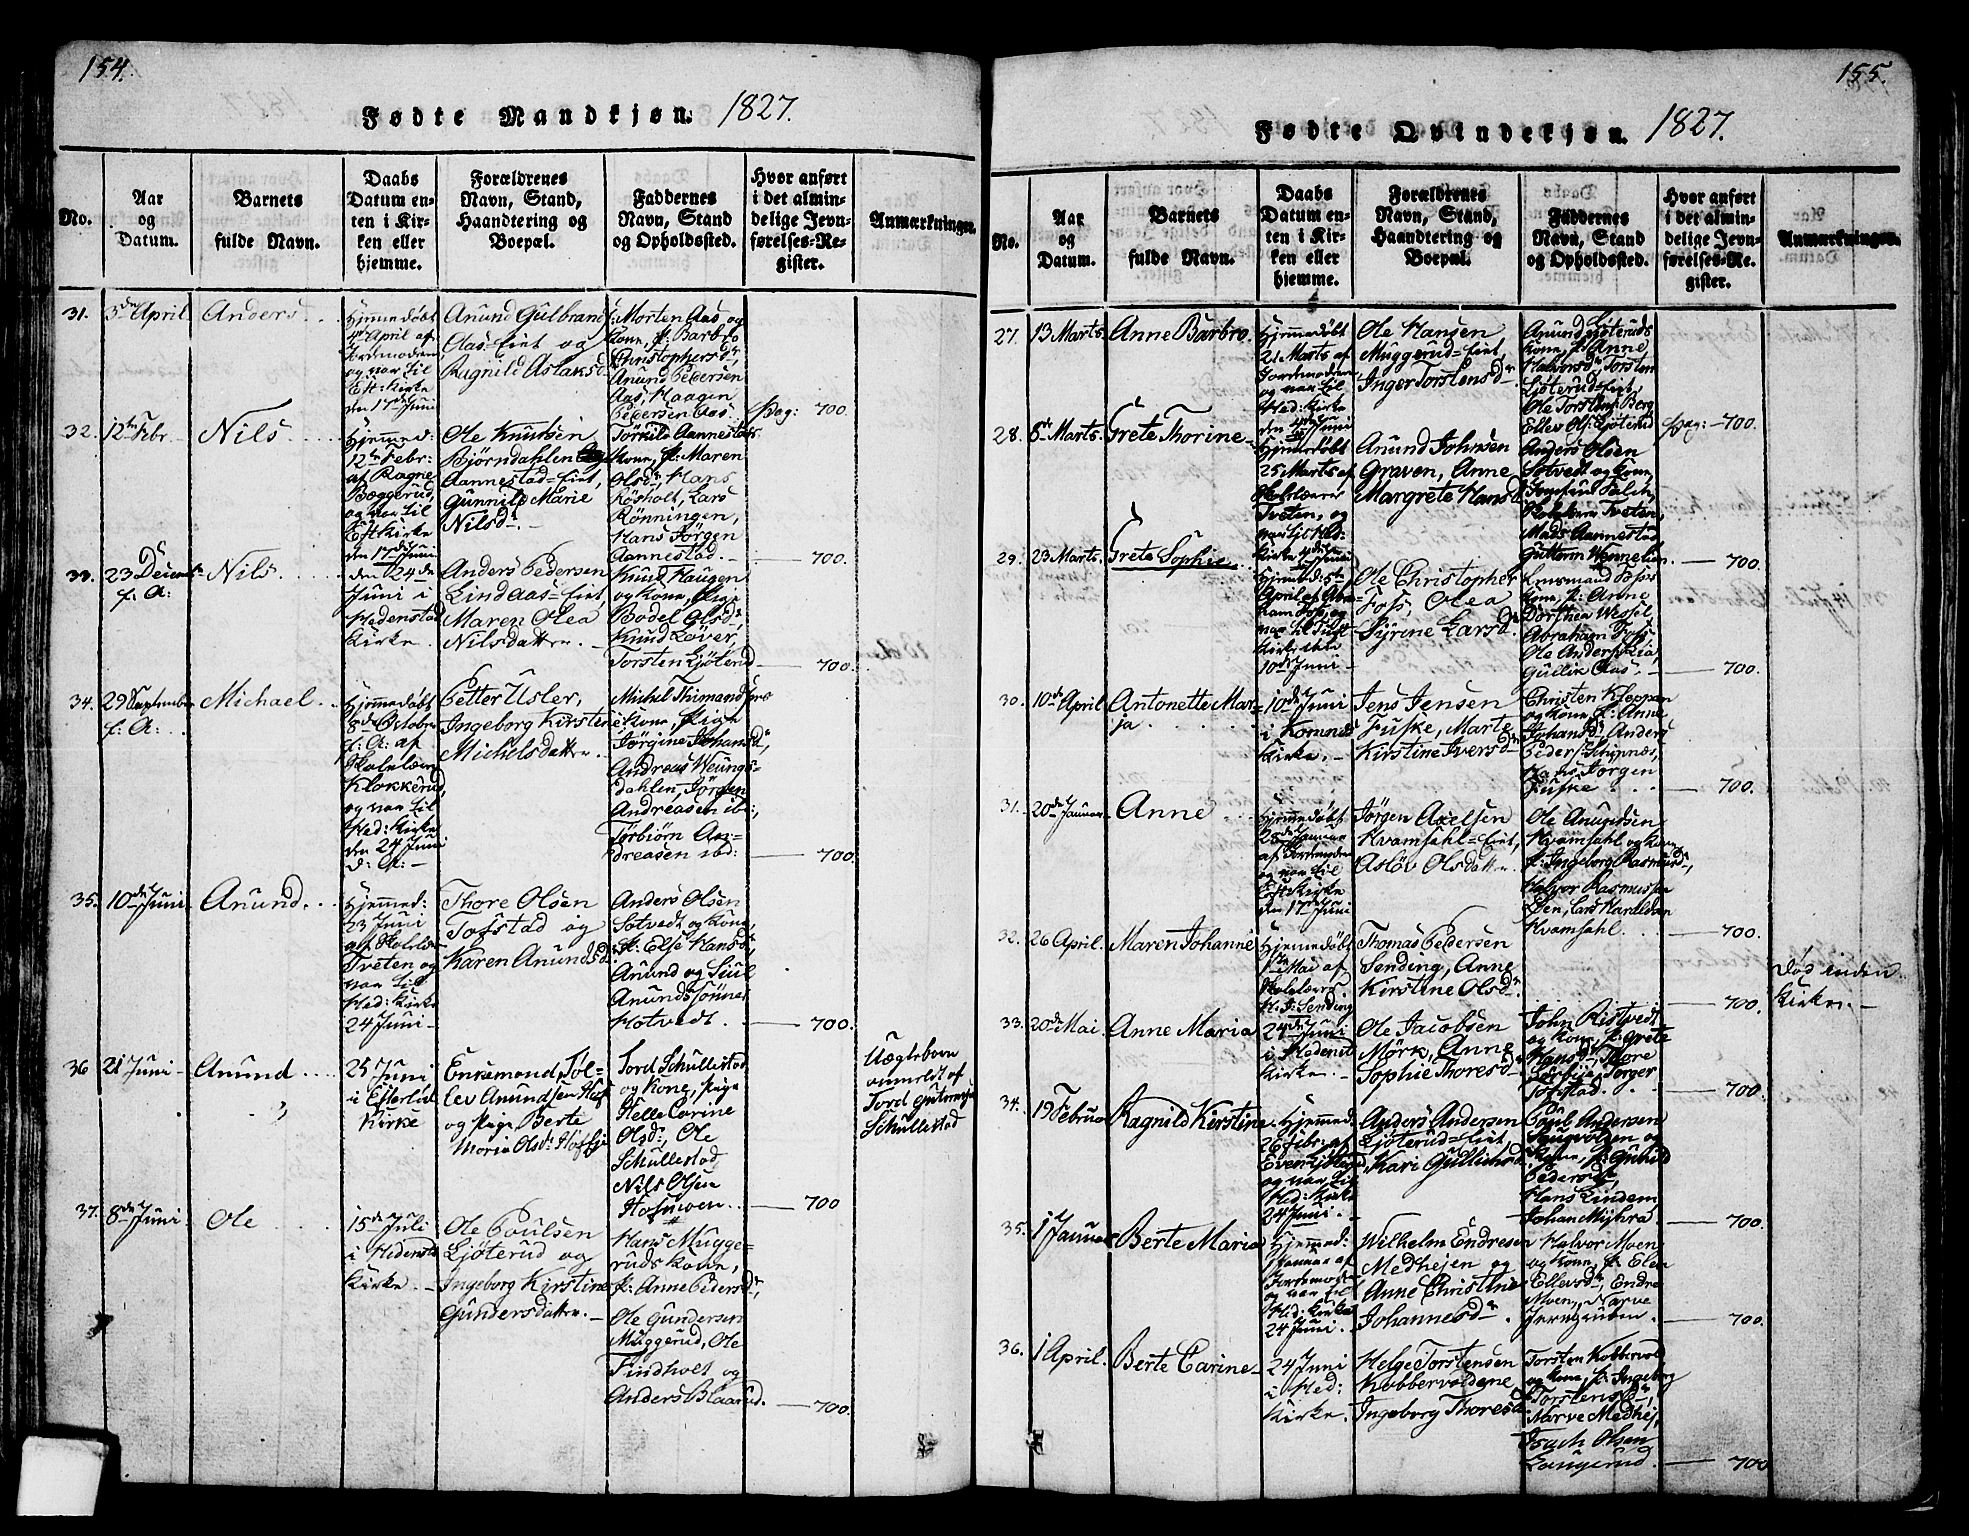 154.
Fødte Mandkjøn. 1827.
No.
Aar
og
Datum.
Barnets
fulde Navn.
Daabs
Datum en-
ten i Kir-
ken eller
hjemme.
Forældrenes
Navn, Stand,
Haandtering og
Boepæl.
Faddernes
Navn, Stand
og Opholdssted.
Hvor anført
i det almin-
delige Jevn-
førelses-Re-
gister.
Anmærkninger.
31.
3de April
Anders
Hjemmedøbt
4de April af
Jordemoderen,
og var til
Eft: Kirke
den 17de Juni
Anund Gulbrands:
Aas-Eiet og
Ragnild Aslaksd:
Morten Aas og
Kone, P: Barbro
Christophersdr,
Anund Pedersen
Aas, Haagen
Pedersen Aas
Pag: 700.
32.
12te Febr.
Nils
Hjemmed:
12te Febr:
af Ragne
Bøggerud,
og var til
Eft Kirke
den 17de Juni
Ole Knudsen
Bjørndahlen
Aannestad-Eiet,
Gunnild Marie
Nilsdr.
Tørkild Aannestads
Kone, P: Maren
Olsdr, Hans
Røsholt, Lars
Rønningen,
Hans Jørgen
Aannestad.
700.
33.
23 Decemb:
f: A:
Nils
den 24de
Juni i
Hedenstad
Kirke
Anders Pedersen
Lindaas-Eiet
Maren Olea
Nilsdatter
Knud Haugen
og Kone, Pige
Bodel Olsdr,
Knud Løver,
Torsten Ljøterud
700.
34.
29 September
f: A:
Michael
Hjemmedøbt
8de Octobr
f: A: af
Skolelærer
Klokkerud,
og var til
Hed: Kirke
den 24 Juni
d: A:
Petter Usler,
Ingeborg Kirstine
Michelsdatter
Michel Thimands
Kone, Pige
Jørgine Johansdr,
Andreas Weungs-
dahlen, Jørgen
Andreasen ib:,
Tørbiørn An-
dreasen ibd:
700.
35.
10de Juni
Anund
Hjemmed:
23 Juni
af Skolelær
Tveten og
var til
Hed: Kirke
24 Juni
Thore Olsen
Tofstad og
Karen Anundsdr
Anders Olsen
Sotvedt og Kone,
P: Else Hansdr,
Anund og Siul
Anunds Sønner
Hotvedt.
700.
36
21 Juni
Anund
25 Juni
i Efterlød
Kirke
Enkemand Tol-
lev Anundsen Hof
og Pige Berte
Maria Olsdr Hof
Tord Schullestad
og Kone, Pige
Helle Carine
Olsd:, Ole
Schullestad
Nils Olsen
Hofmoen
700
Uægtebarn
anmeldt af
Tord Gutormsen
Schullestad
37.
8de Juni
Ole
15de Juli
i Hedensta
Kirke
Ole Poulsen
Ljøterud og
Ingeborg Kirstine
Gundersdatter
Hans Mugge-
ruds Kone,
P: Anne Pedersdr,
Ole Gundersen
Muggerud, Ole
Tindholt og
Anders Blaarud.
700.
155.
Fødte Qvindekjøn. 1827.
No.
Aar
og
Datum.
Barnets
fulde Navn.
Daabs
Datum en-
ten i Kir-
ken eller
hjemme.
Forældrenes
Navn, Stand,
Haandtering og
Boepæl.
Faddernes
Navn, Stand
og Opholdssted.
Hvor anført
i det almin-
delige Jevn-
førelses-Re-
gister.
Anmærkninger.
27.
13 Marts
Anne Barbro
Hjemmedøbt
21 Marts af
Jordemoderen
og var til
Hed: Kirke
den 4de Juni
Ole Hansen
Muggerud-Eiet,
Inger Torstensdr
Anund Ljøteruds
Kone, P: Anne
Halvorsdr, Torsten
Ljøterud-Eiet,
Ole Torstens: Berg
Ellev Ols: Ljøterud
Pag: 700.
28.
8de Marts
Grete Thorine
Hjemmedøbt
25 Marts af
Skolelærer
Tveten, og
var til Hed:
Kirke 4de Juni
Anund Johnsen
Graven, Anne
Margrete Hansdr
Anders Olsen
Sotvedt og Kone,
Jomfru Falch,
Skolelærer Tveten,
Mads Aannestad
Guttorm Wennelien
700.
29.
23 Marts
Grete Sophie
Hjemmed: 5te
April af Abra-
ham Fos, og
var til
Kirke
10de Juni
Ole Christopher
Foss, Olea
Syrine Larsdr
Kone, P: Anne
Dorthea Wessel
Abraham Foss
Ole Anders:
Gullik Aas
700.
30.
10de April
Antonette Mar-
ja
10de Juni
i Komnes
Kirke
Jens Jensen
Fuske, Marte
Kirstine Iversdr
Christen Kleppan
og Kone, P: Anne
Johansdr, Anders
Peders:
Hans Jørgen
Fuske
700.
31.
20de Januar
Anne
Hjemmedøbt
28de Januar
af Jordemoder
og var til
Eft Kirke
den 17de Juni
Jørgen Axelsen
Kvamsahl-Eiet,
Asløv Olsdatter
Ole Anundsen
Kvamsahl og Kone,
P: Ingeborg Rasmusdr,
Halvor Rasmussen
Øen, Lars Haraldsen
Kvamsahl.
700.
32.
26 April
Maren Johanne
Hjemmedøbt
1ste Mai af
Skolelærer
H. J: Sending
Thomas Pedersen
Sending, Anne
Kirstine Olsdr
700.
Død uden
Kirke.
33.
20de Mai
Anne Maria
24de Juni
i Hedenst
Kirke
Ole Jacobsen
Mørk, Anne
Sophie Thoresdr
John Ristvedt
og Kone, P: Grete
Hansdr, Thore
Torger
Tofstad.
700.
34.
19 Februar
Ragnild Kirstine
Hjemmed:
26 Febr: af
Even Ljøterud
og var til
Hed: Kirke
24 Juni
Anders Andersen
Ljøterud-Eiet,
Kari Gulliksdr
Poul Andersen
Saugvolden og
Kone, P: Gunild
Pedersdr,
Hans Lindem,
Johan Myhra
700.
35.
1 Januar
Berte Maria
Hjemmed:
1 Januar af
Jordemoder
og var til
Hed: Kirke
24 Juni
Wilhelm Endresen
Medhejen og
Anne Christine
Johannesdr
Halvor Moen
og Kone, P: Elen
Ellevsdr, Endre
Moen, Narve
Jerngruben
700.
36.
1 April.
Berte Carine
24 Juni
i Hed:
Kirke
Helge Torstensen
Kobbervoldene
Ingeborg Thoresdr
Torsten Kobbervold
og Kone, P: Ingeborg
Torstensdr,
Narve Medhej,
Isach Olsen
Laugerud.
700